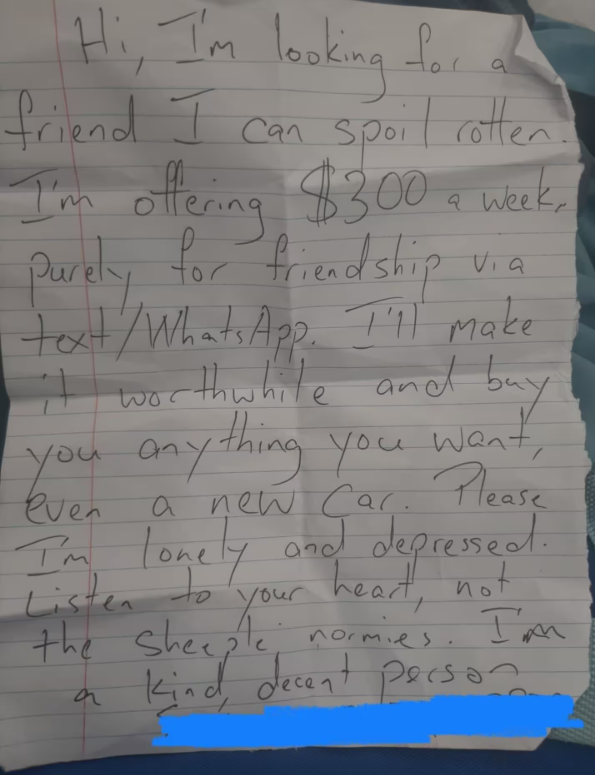 Hi, I'm looking for a
friend I can spoil rotten.
I'm offering $300 a week,
purely for friendship via
text/WhatsApp. I'll make
it worthwhile and buy
you anything you want,
even a new car. Please
I'm lonely and depressed.
Listen to your heart, not
the sheeple, normies. I'm
a kind, decent person